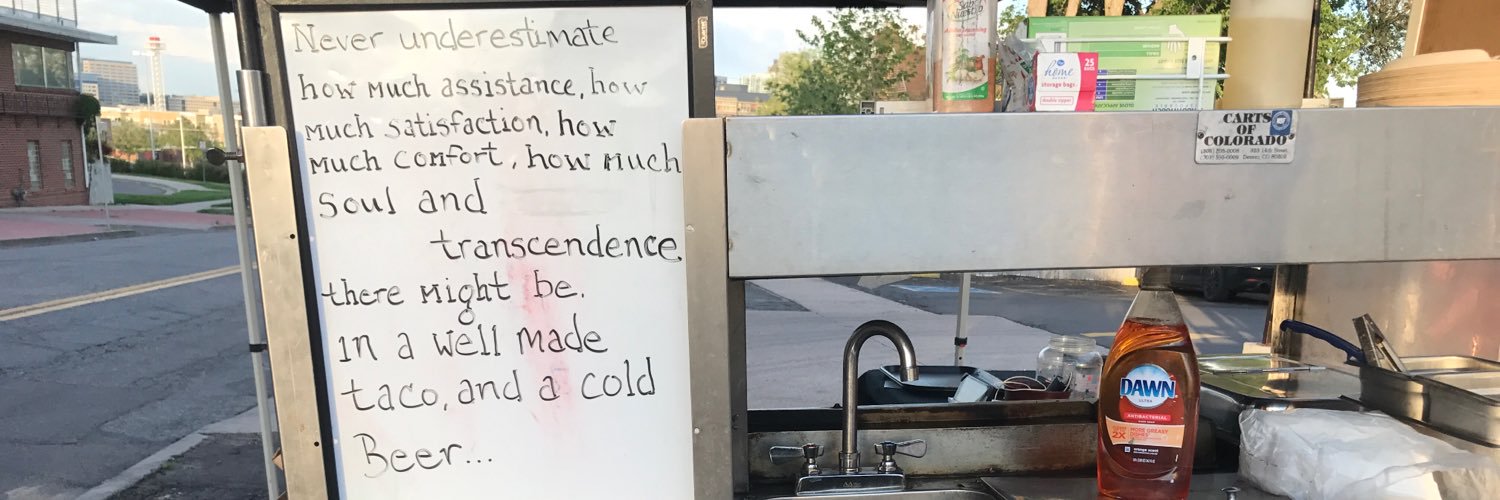 Never underestimate
how much assistance, how
much satisfaction, how
much comfort, how much
soul and
transcendence
there might be.
in a well made
taco, and a cold
Beer...
home
storage bags
double zipper
25
CARTS
OF
COLORADO
Denver, CO
DAWN
ULTRA
ANTIBACTERIAL
2X
MORE GREASY
DISHES
orange scent